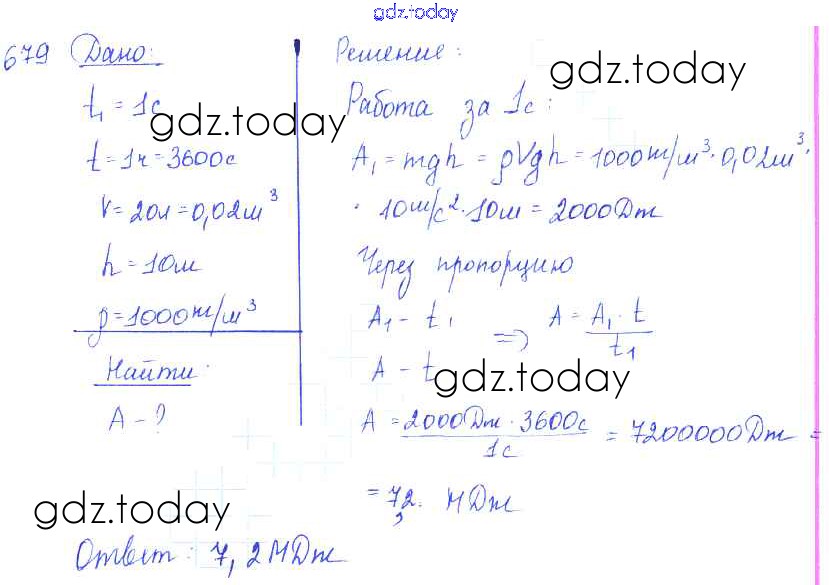 gdz.today
679 Дано:
t₁ = 1с
gdz.today
t = 1ч = 3600с
V = 20л = 0,02м³
h = 10м
ρ = 1000кг/м³
Найти:
A - ?
Решение:
gdz.today
Работа за 1с:
A₁ = mgh = ρVgh = 1000кг/м³ · 0,02м³ ·
· 10м/с² · 10м = 2000Дж
Через пропорцию
A₁ - t₁
A - t
=> A = A₁ · t / t₁
gdz.today
A = 2000Дж · 3600с / 1с = 7200000Дж =
= 7,2 МДж
gdz.today
Ответ: 7,2МДж